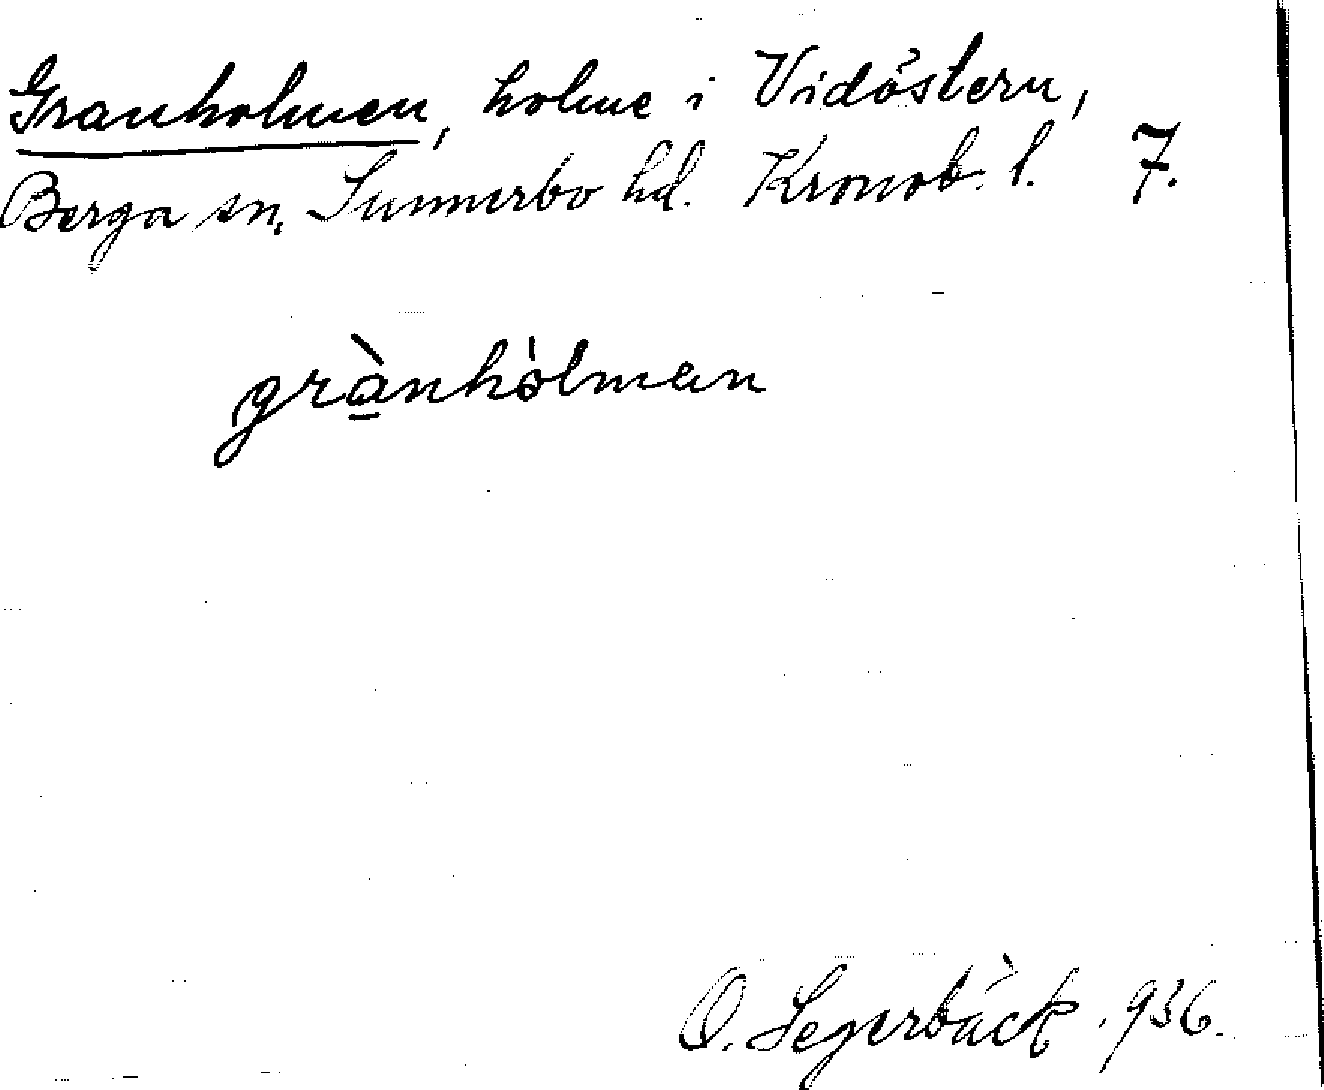 Granholmen, holme i Vidöstern,
Berga sn, Sunnerbo hd. Kronob. l. 7.
grànhòlman
O. Segerbäck. 936.